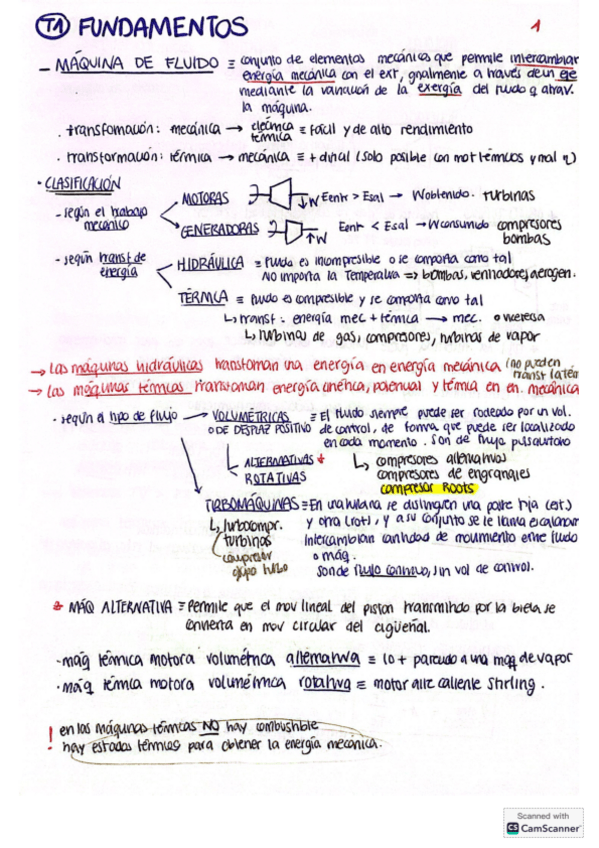 T1 FUNDAMENTOS
1
- MÁQUINA DE FLUIDO ≡ conjunto de elementos mecánicos que permite intercambiar
energía mecánica con el ext, gnalmente a través de un eje
mediante la variación de la exergía del fluido q atrav.
la máquina.
· transformación: mecánica → eléctrica
térmica ≡ fácil y de alto rendimiento
· transformación: térmica → mecánica ≡ + difícil (solo posible con mot térmicos y mal η)
· CLASIFICACIÓN
- según el trabajo
mecánico
MOTORAS
↓W Eentr > Esal → W obtenido. turbinas
GENERADORAS
↑W Eentr < Esal → W consumido compresores
bombas
- según transf de
energía
HIDRÁULICA ≡ fluido es incompresible o se comporta como tal
NO importa la Temperatura => bombas, ventiladores, aerogen.
TÉRMICA ≡ fluido es compresible y se comporta como tal
↳ transf: energía mec + térmica → mec. o viceversa
↳ turbinas de gas, compresores, turbinas de vapor
→ Las máquinas hidráulicas transforman una energía en energía mecánica (no pueden
transf
→ Las máquinas térmicas transforman energía cinética, potencial y térmica en en. mecánica
- según el tipo de flujo → VOLUMÉTRICAS ≡ El fluido siempre puede ser rodeado por un vol.
O DE DESPLAZ POSITIVO de control, de forma que puede ser localizado
en cada momento. Son de flujo pulsatorio
ALTERNATIVAS *
ROTATIVAS
↳ compresores alternativos
compresores de engranajes
compresor Roots
TURBOMÁQUINAS ≡ En una turbina se distinguen una parte fija (est)
y otra (rot), y a su conjunto se le llama escalonam
Intercambian cantidad de movimiento entre fluido
o máq.
Son de flujo continuo, sin vol de control.
↳ turbocompr.
turbinas
compresor
tipo turbo
* MÁQ ALTERNATIVA ≡ Permite que el mov lineal del pistón transmitido por la biela se
convierta en mov circular del cigüeñal.
· máq térmica motora volumétrica alternativa ≡ lo + parecido a una maq de vapor
· máq térmica motora volumétrica rotativa ≡ motor aire caliente Stirling.
! en las máquinas térmicas NO hay combustible
hay estados térmicos para obtener la energía mecánica.
Scanned with
CS CamScanner